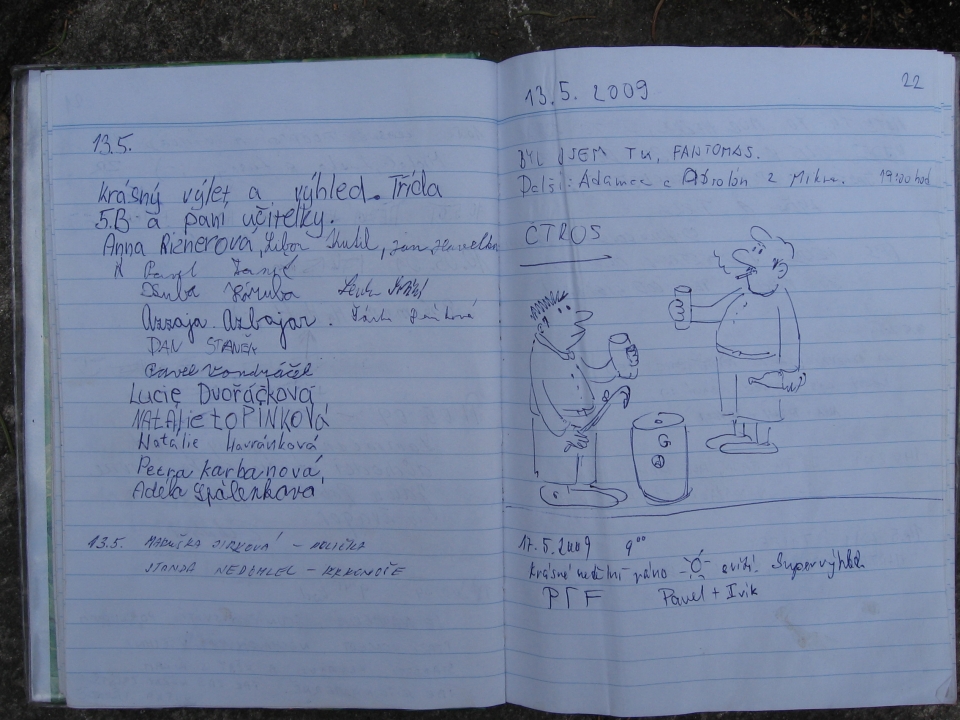 13.5.
Krásný výlet a výhled. Třída
5.B a paní učitelky.
Anna Riznerová, Libor
Pavel
Azzaja. Azbajar.
DAN STANĚK
Pavel Vondráček
Lucie Dvořáčková
NATALIE TOPINKOVÁ
Natálie Havránková
Petra Karbanová,
Adéla Spálenková
13.5. MARUŠKA JIRKOVÁ – HOLIČKA
STANDA NEDOHLEL – KRKONOŠE
22
13.5. 2009
BYL JSEM TU, FANTOMAS.
Další: Adamec a z Mikro. 19:00 hod
CTROS
17.5.2009 9°°
Krásné nedělní ráno svítí. Supervýhled
PTF Pavel + Ivik